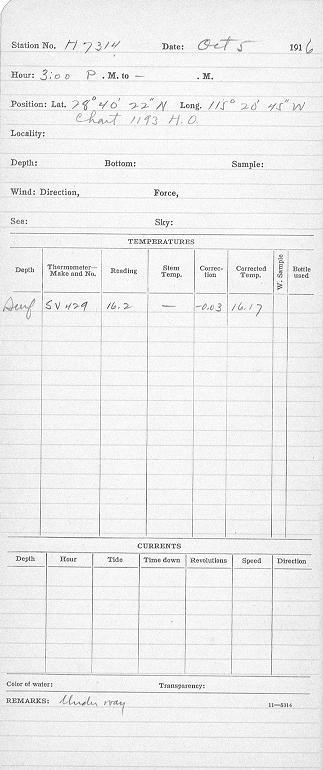 Station No. H 7314 Date: Oct 5 1916
Hour: 3:00 P . M. to — . M.
Position: Lat. 28° 40' 22" N Long. 115° 20' 45" W
Chart 1193 H.O.
Locality:
Depth: Bottom: Sample:
Wind: Direction, Force,
Sea: Sky:
TEMPERATURES
Depth Thermometer—Make and No. Reading Stem Temp. Correction Corrected Temp. W. Sample Bottle used
Surf SV 429 16.2 — -0.03 16.17
CURRENTS
Depth Hour Tide Time down Revolutions Speed Direction
Color of water: Transparency:
REMARKS: Under way 11—5314